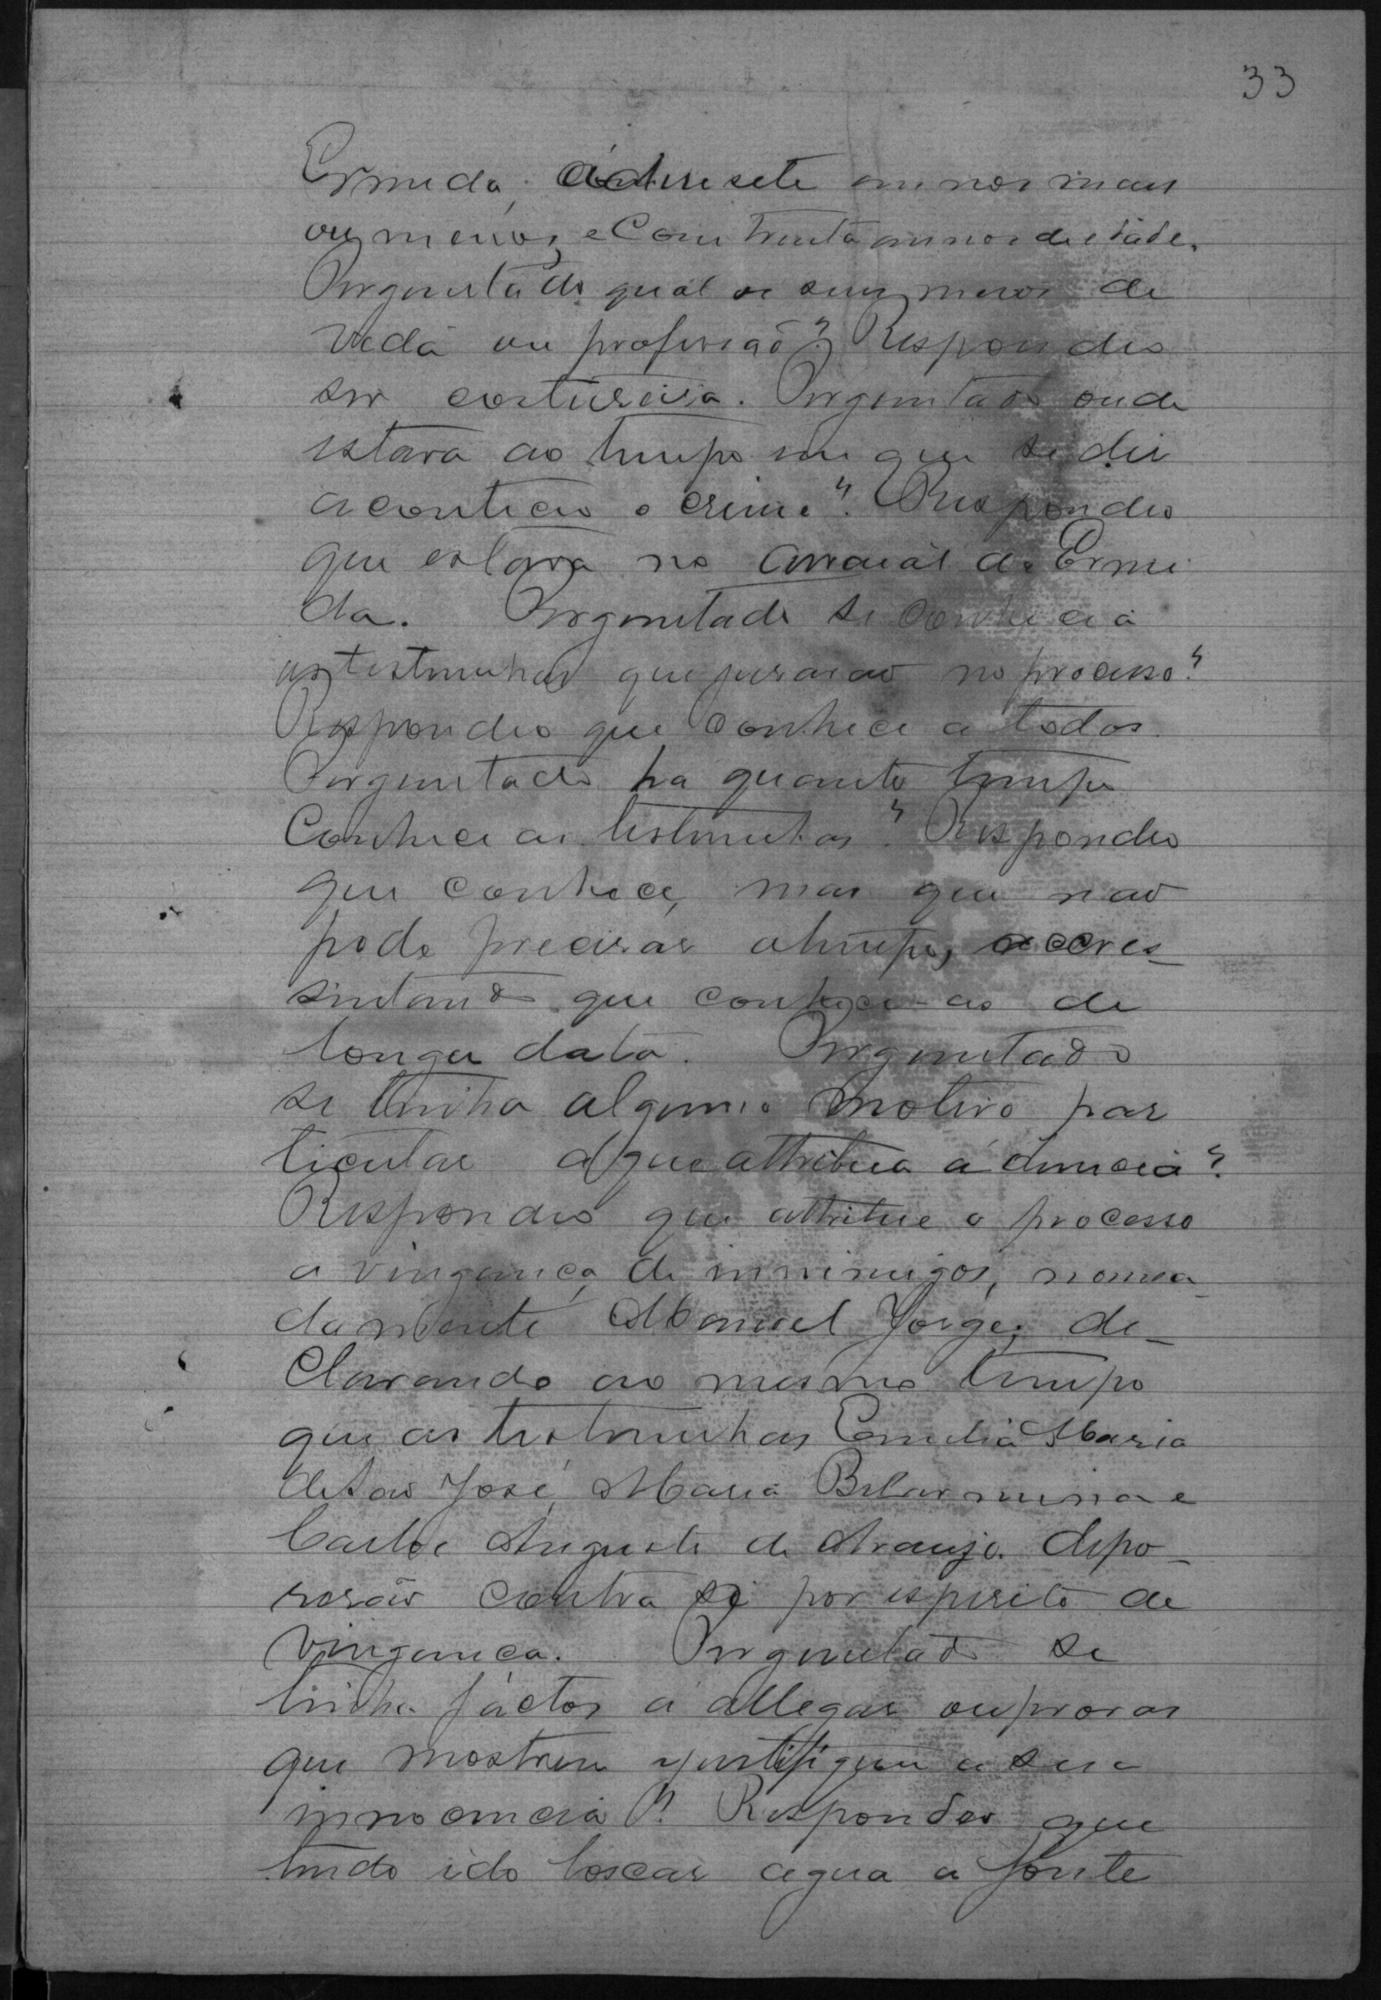 33
Ermida, á dusesete annos mais
ou menos, e com trinta annos de edade.
Perguntado qual os seus meios de
vida ou profissão? Respondeo
ser costureira. Perguntado onde
estava ao tempo em que se diz
aconteceo o crime? Respondeo
que estava no arraial da Ermi
da. Perguntado se conhecia
as testemunhas que jurarão no processo?
Respondeo que conhece a todas.
Perguntado ha quanto tempo
conhece as testemunhas? Respondeo
que conhece, mas que não
pode precisar o tempo, accres-
sentando que conhece-as de
longa data. Perguntado
se tinha algum motivo par
ticular a que attribua a denuncia?
Respondeo que attribue o processo
a vingança de innimigos, nomea-
damente Manoel Jorge, de-
clarando ao mesmo tempo
que as testemunhas Emilia Maria
de São José, Maria Belarmina e
Carlos Augusto de Araujo depo-
serão contra si por espirito de
vingança. Perguntado se
tinha factos a allegar ou provas
que mostrem e justifiquem a sua
innocencia? Respondeo que
tendo ido boscar agua a fonte